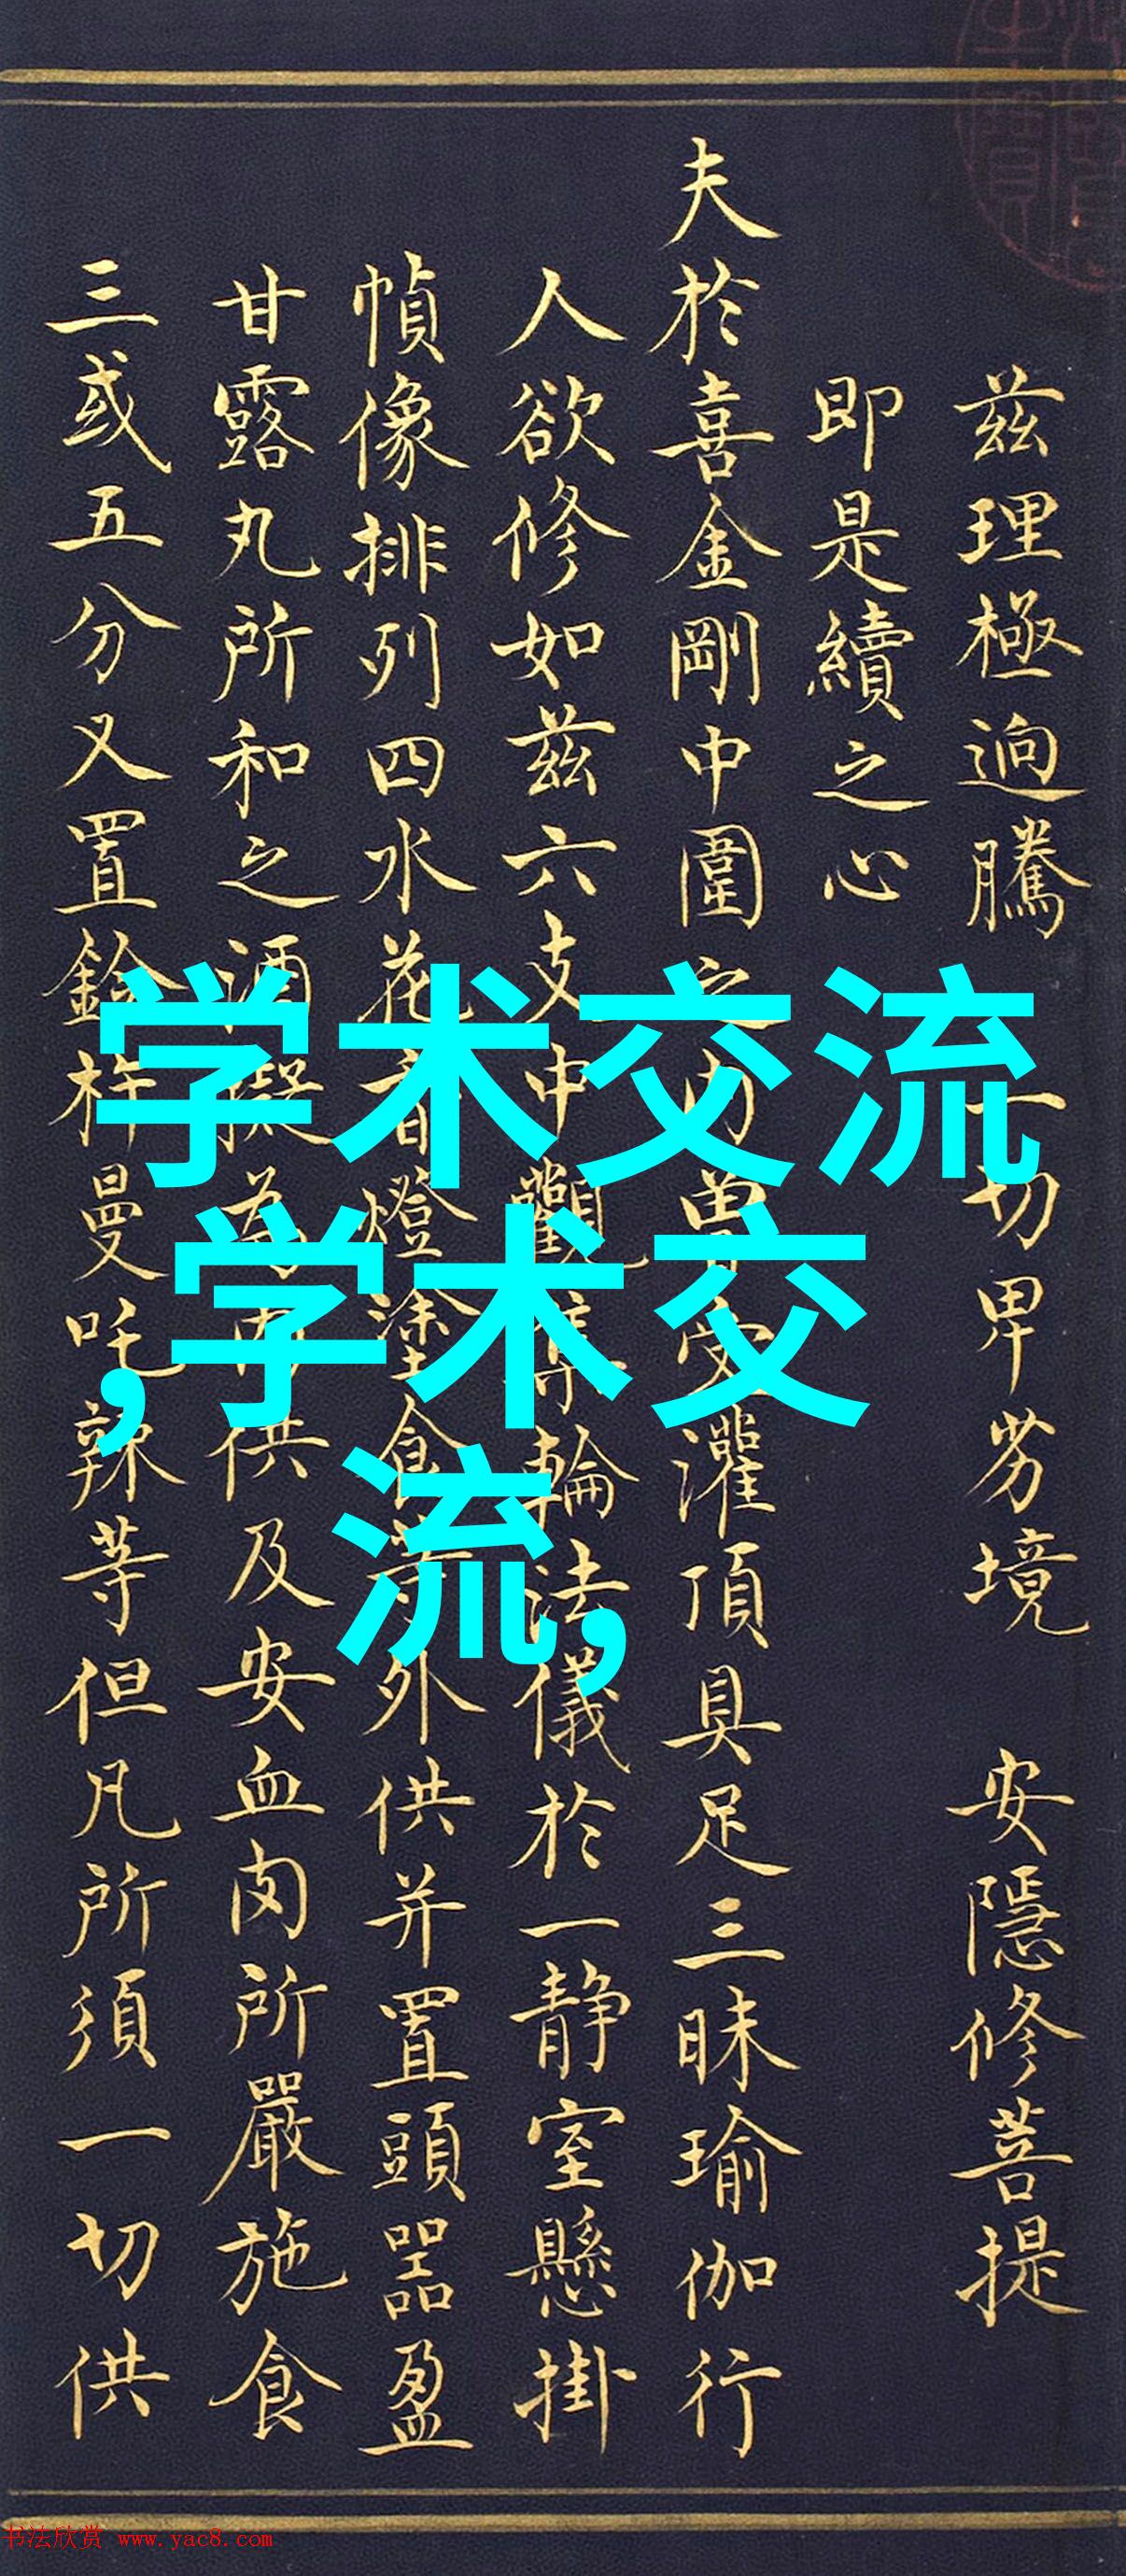 茲理極逈騰 一切卑劣境 安隱修菩提
即是續之心
夫於喜金剛中圍之內曾受灌頂具足三昧瑜伽行
人欲修如茲六支中觀集輪法儀於一静室懸掛
幀像排列四水花香燈塗食等外供并置頭器盈
甘露丸所和之酒擬為內供及安血肉所嚴施食
三或五分又置鈴杵曼吒辣等但凡所須一切供
学术交流
,学术交
流,
书法欣赏 www.yac8.com